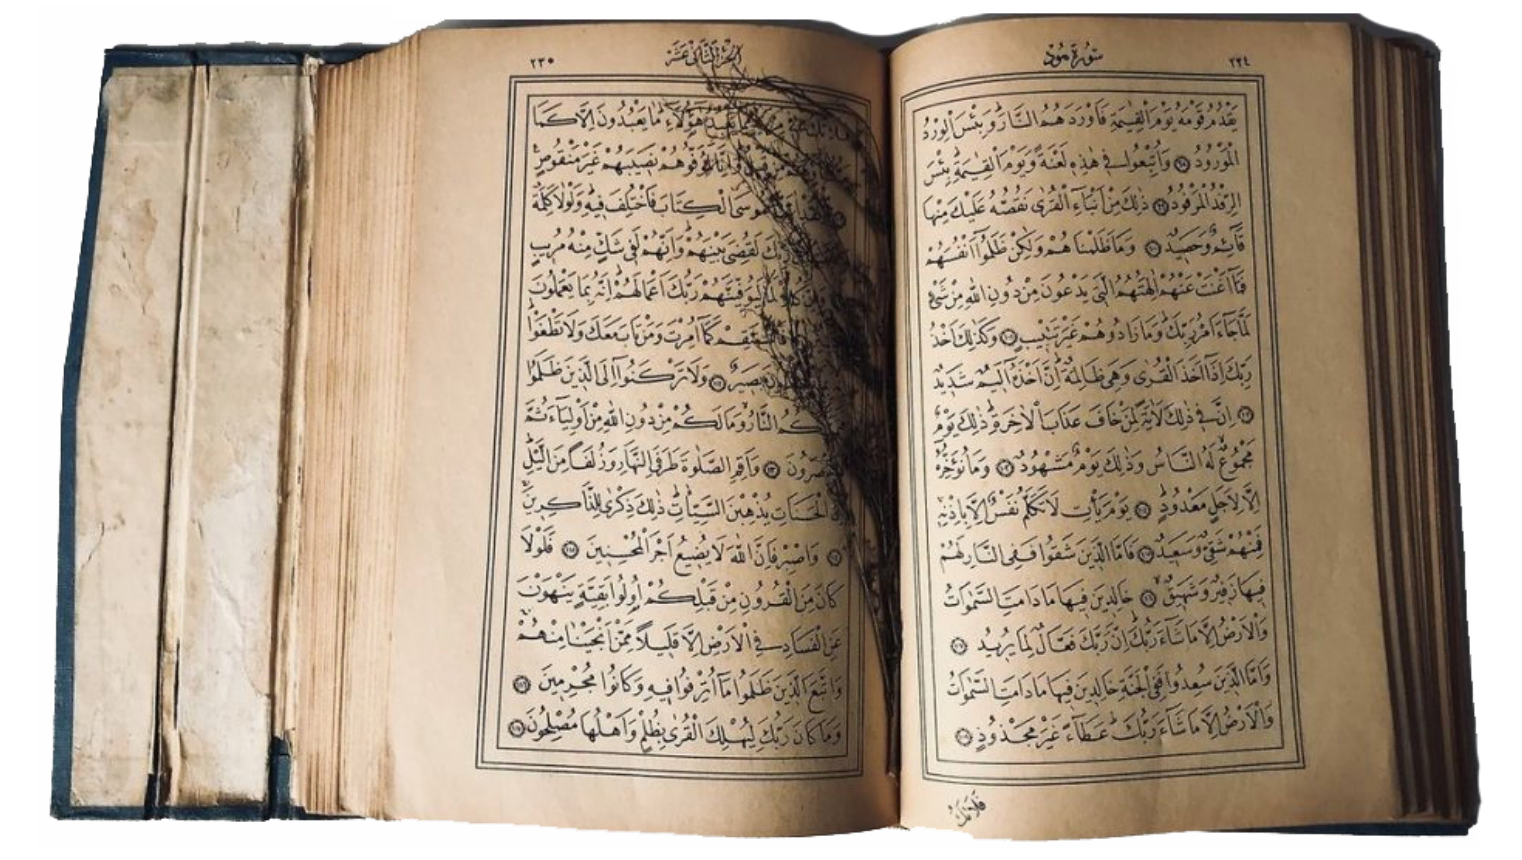 ٢٣٤
سُورَةُ هُودٍ
يَقْدُمُ قَوْمَهُ يَوْمَ الْقِيٰمَةِ فَاَوْرَدَهُمُ النَّارَ وَبِئْسَ الْوِرْدُ
الْمَوْرُودُ ﴿٩٨﴾ وَاُتْبِعُوا فِى هٰذِهِ لَعْنَةً وَيَوْمَ الْقِيٰمَةِ بِئْسَ
الرِّفْدُ الْمَرْفُودُ ﴿٩٩﴾ ذٰلِكَ مِنْ اَنْبَاءِ الْقُرٰى نَقُصُّهُ عَلَيْكَ مِنْهَا
قَائِمٌ وَحَصِيدٌ ﴿١٠٠﴾ وَمَا ظَلَمْنَاهُمْ وَلٰكِنْ ظَلَمُوا اَنْفُسَهُمْ
فَمَا اَغْنَتْ عَنْهُمْ اٰلِهَتُهُمُ الَّتِى يَدْعُونَ مِنْ دُونِ اللّٰهِ مِنْ شَىْءٍ
لَمَّا جَاءَ اَمْرُ رَبِّكَ وَمَا زَادُوهُمْ غَيْرَ تَتْبِيبٍ ﴿١٠١﴾ وَكَذٰلِكَ اَخْذُ
رَبِّكَ اِذَا اَخَذَ الْقُرٰى وَهِىَ ظَالِمَةٌ اِنَّ اَخْذَهُ اَلِيمٌ شَدِيدٌ
﴿١٠٢﴾ اِنَّ فِى ذٰلِكَ لَاٰيَةً لِمَنْ خَافَ عَذَابَ الْاٰخِرَةِ ذٰلِكَ يَوْمٌ
مَجْمُوعٌ لَهُ النَّاسُ وَذٰلِكَ يَوْمٌ مَشْهُودٌ ﴿١٠٣﴾ وَمَا نُؤَخِّرُهُ
اِلَّا لِاَجَلٍ مَعْدُودٍ ﴿١٠٤﴾ يَوْمَ يَأْتِ لَا تَكَلَّمُ نَفْسٌ اِلَّا بِاِذْنِهِ
فَمِنْهُمْ شَقِىٌّ وَسَعِيدٌ ﴿١٠٥﴾ فَاَمَّا الَّذِينَ شَقُوا فَفِى النَّارِ لَهُمْ
فِيهَا زَفِيرٌ وَشَهِيقٌ ﴿١٠٦﴾ خَالِدِينَ فِيهَا مَا دَامَتِ السَّمٰوَاتُ
وَالْاَرْضُ اِلَّا مَا شَاءَ رَبُّكَ اِنَّ رَبَّكَ فَعَّالٌ لِمَا يُرِيدُ ﴿١٠٧﴾
وَاَمَّا الَّذِينَ سُعِدُوا فَفِى الْجَنَّةِ خَالِدِينَ فِيهَا مَا دَامَتِ السَّمٰوَاتُ
وَالْاَرْضُ اِلَّا مَا شَاءَ رَبُّكَ عَطَاءً غَيْرَ مَجْذُوذٍ ﴿١٠٨﴾
فَلَا تَكُ
اَلْجُزْءُ الثَّانِى عَشَرَ
٢٣٥
يَعْبُدُ هٰؤُلَاءِ مَا يَعْبُدُونَ اِلَّا كَمَا
قَبْلُ وَاِنَّا لَمُوَفُّوهُمْ نَصِيبَهُمْ غَيْرَ مَنْقُوصٍ
مُوسَى الْكِتَابَ فَاخْتُلِفَ فِيهِ وَلَوْلَا كَلِمَةٌ
رَبِّكَ لَقُضِىَ بَيْنَهُمْ وَاِنَّهُمْ لَفِى شَكٍّ مِنْهُ مُرِيبٍ
لَمَّا لَيُوَفِّيَنَّهُمْ رَبُّكَ اَعْمَالَهُمْ اِنَّهُ بِمَا يَعْمَلُونَ
فَاسْتَقِمْ كَمَا اُمِرْتَ وَمَنْ تَابَ مَعَكَ وَلَا تَطْغَوْا
بَصِيرٌ ﴿١١٢﴾ وَلَا تَرْكَنُوا اِلَى الَّذِينَ ظَلَمُوا
النَّارُ وَمَا لَكُمْ مِنْ دُونِ اللّٰهِ مِنْ اَوْلِيَاءَ ثُمَّ
تُنْصَرُونَ ﴿١١٣﴾ وَاَقِمِ الصَّلٰوةَ طَرَفَىِ النَّهَارِ وَزُلَفًا مِنَ الَّيْلِ
الْحَسَنَاتِ يُذْهِبْنَ السَّيِّـَٔاتِ ذٰلِكَ ذِكْرٰى لِلذَّاكِرِينَ
﴿١١٤﴾ وَاصْبِرْ فَاِنَّ اللّٰهَ لَا يُضِيعُ اَجْرَ الْمُحْسِنِينَ ﴿١١٥﴾ فَلَوْلَا
كَانَ مِنَ الْقُرُونِ مِنْ قَبْلِكُمْ اُولُوا بَقِيَّةٍ يَنْهَوْنَ
عَنِ الْفَسَادِ فِى الْاَرْضِ اِلَّا قَلِيلًا مِمَّنْ اَنْجَيْنَا مِنْهُمْ
وَاتَّبَعَ الَّذِينَ ظَلَمُوا مَا اُتْرِفُوا فِيهِ وَكَانُوا مُجْرِمِينَ ﴿١١٦﴾
وَمَا كَانَ رَبُّكَ لِيُهْلِكَ الْقُرٰى بِظُلْمٍ وَاَهْلُهَا مُصْلِحُونَ ﴿١١٧﴾